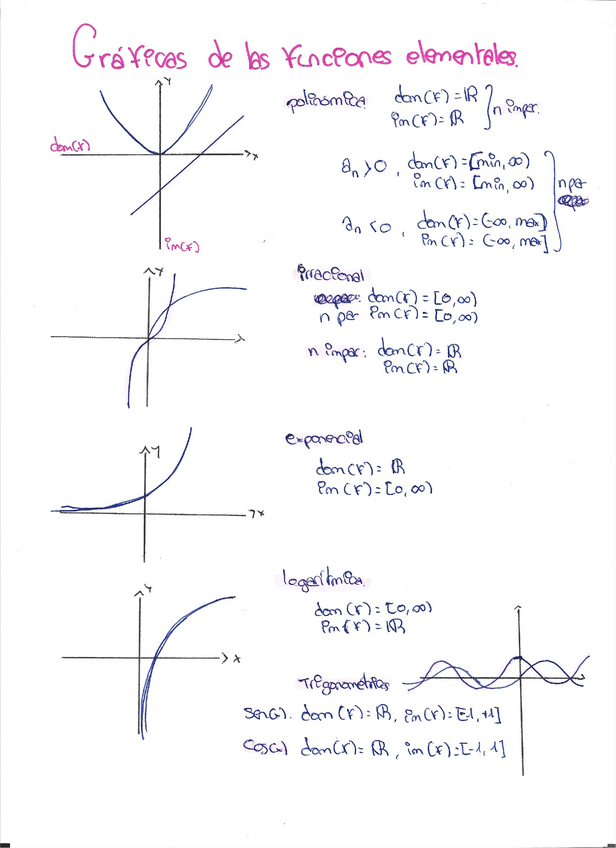 Gráficas de las funciones elementales.
y
dom(f)
x
im(f)
polinómica dom(f) = ℝ
im(f) = ℝ } n impar.
aₙ > 0, dom(f) = [min, ∞)
im(f) = [min, ∞)
n par
aₙ < 0, dom(f) = (-∞, max]
im(f) = (-∞, max]
y
x
irracional
dom(f) = [0, ∞)
n par im(f) = [0, ∞)
n impar: dom(f) = ℝ
im(f) = ℝ
y
x
exponencial
dom(f) = ℝ
im(f) = [0, ∞)
y
x
logarítmica
dom(f) = [0, ∞)
im(f) = ℝ
Trigonométricas
sen(x). dom(f) = ℝ, im(f) = [-1, +1]
cos(x) dom(f) = ℝ, im(f) = [-1, 1]